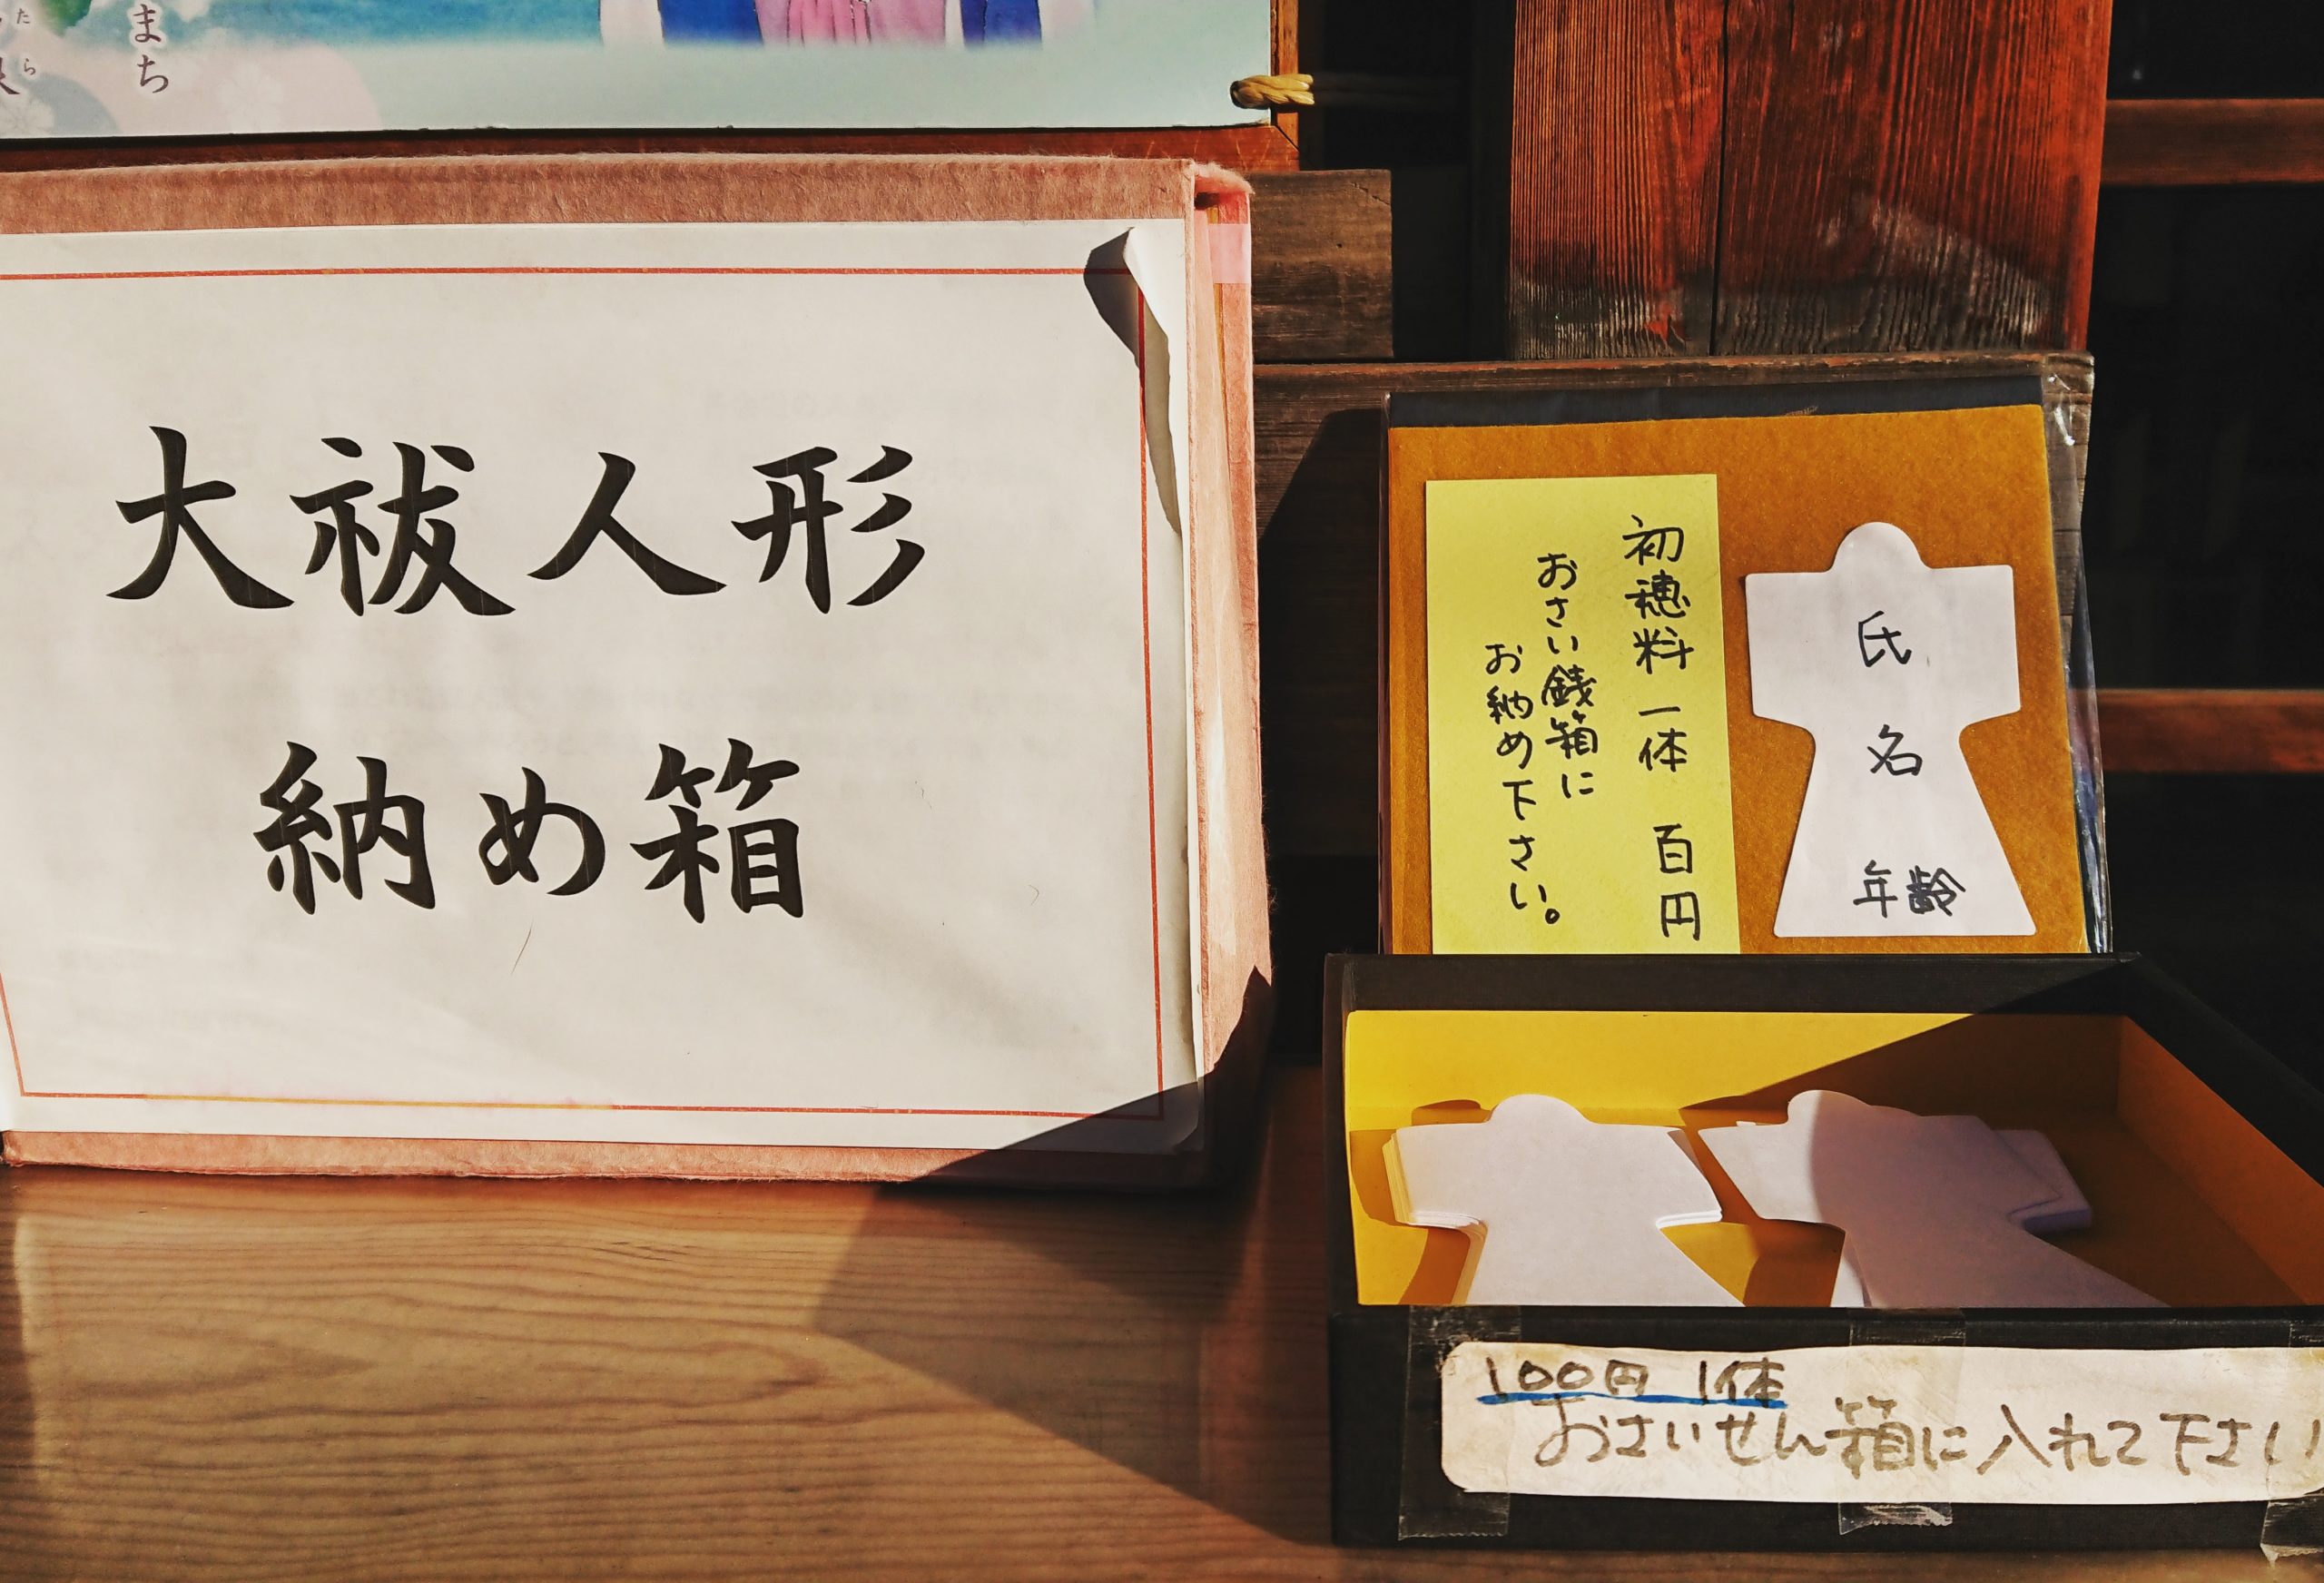 まち
たら
大祓人形
納め箱
初穂料一体 百円
おさい銭箱に
お納め下さい。
氏名
年齢
100円 1体
おさいせん箱に入れて下さい